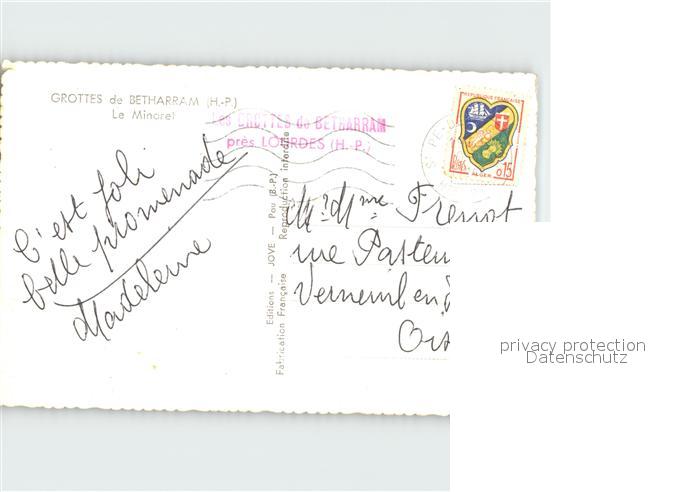 GROTTES de BETHARRAM (H.-P.)
Le Minaret
LES GROTTES de BETHARRAM
près LOURDES (H.-P.)
REPUBLIQUE FRANÇAISE
ALGER 0,15
C'est joli
belle promenade
Madeleine
Editions — JOVE — Pau (B.-P.)
Reproduction interdite
Fabrication Française
Mr Mme Fremot
rue Pasteu
Verneuil en
Ois
privacy protection
Datenschutz